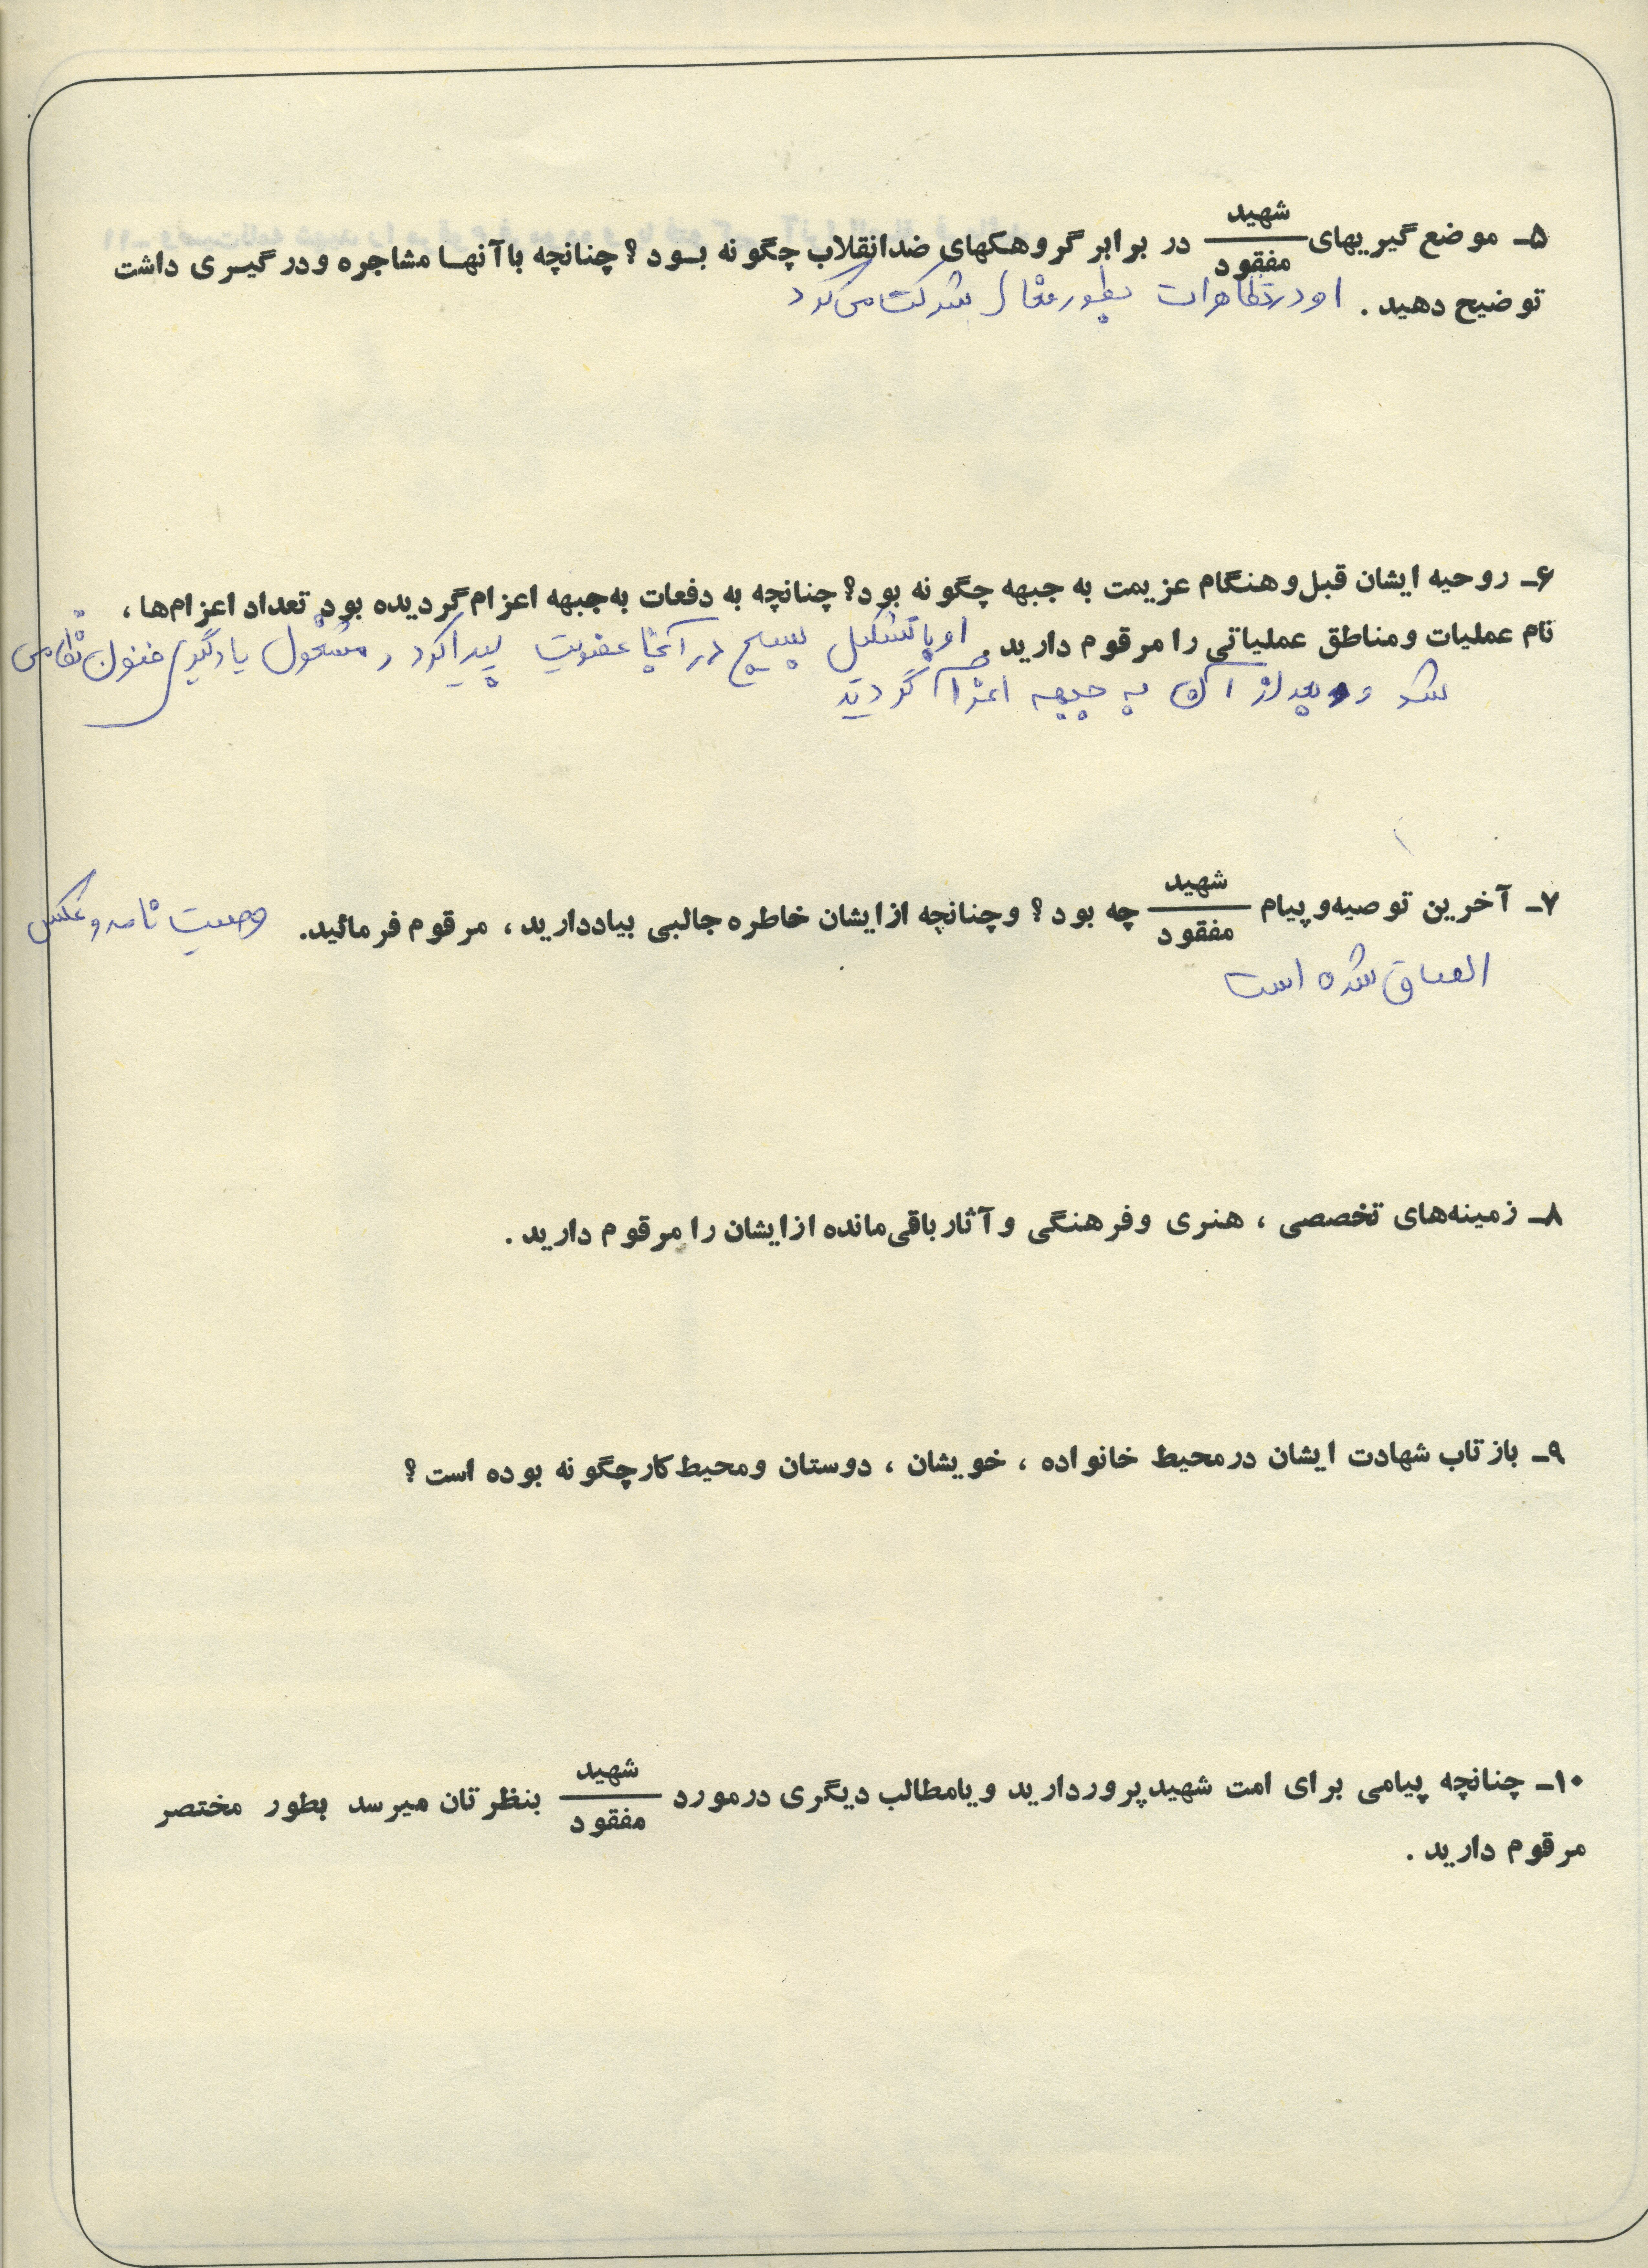 ۵ـ موضع گیریهای شهید/مفقود در برابر گروهکهای ضدانقلاب چگونه بود؟ چنانچه باآنها مشاجره ودرگیری داشت
توضیح دهید. او در تظاهرات بطور فعال شرکت می کرد
۶ـ روحیه ایشان قبل وهنگام عزیمت به جبهه چگونه بود؟ چنانچه به دفعات به جبهه اعزام گردیده بود تعداد اعزام‌ها،
نام عملیات ومناطق عملیاتی را مرقوم دارید. او با تشکیل بسیج در آنجا عضویت پیدا کرد و مشغول یادگیری فنون نظامی
شد و بعد از آن به جبهه اعزام گردید
۷ـ آخرین توصیه وپیام شهید/مفقود چه بود؟ وچنانچه ازایشان خاطره جالبی بیاددارید، مرقوم فرمائید. وصیت نامه و عکس
الصاق شده است
۸ـ زمینه‌های تخصصی، هنری وفرهنگی وآثار باقی‌مانده ازایشان را مرقوم دارید.
۹ـ بازتاب شهادت ایشان درمحیط خانواده، خویشان، دوستان ومحیط کارچگونه بوده است؟
۱۰ـ چنانچه پیامی برای امت شهیدپرور دارید ویامطالب دیگری درمورد شهید/مفقود بنظرتان میرسد بطور مختصر
مرقوم دارید.